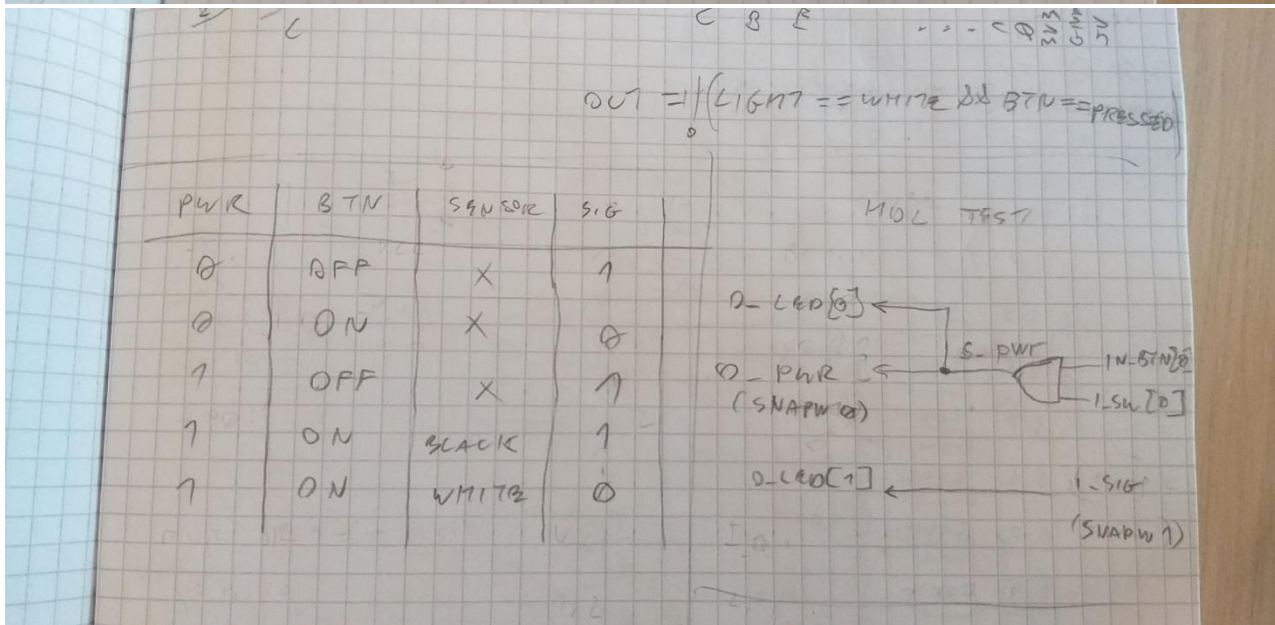 C B E
OUT = !(LIGHT == WHITE && BTN == PRESSED)
PWR BTN SENSOR SIG
0 OFF X 1
0 ON X 0
1 OFF X 1
1 ON BLACK 1
1 ON WHITE 0
HDL TEST
O_LED[0]
S_PWR
IN_BTN[0]
O_PWR
I_SW[0]
(SNAPW 0)
O_LED[1]
I_SIG
(SNAPW 1)